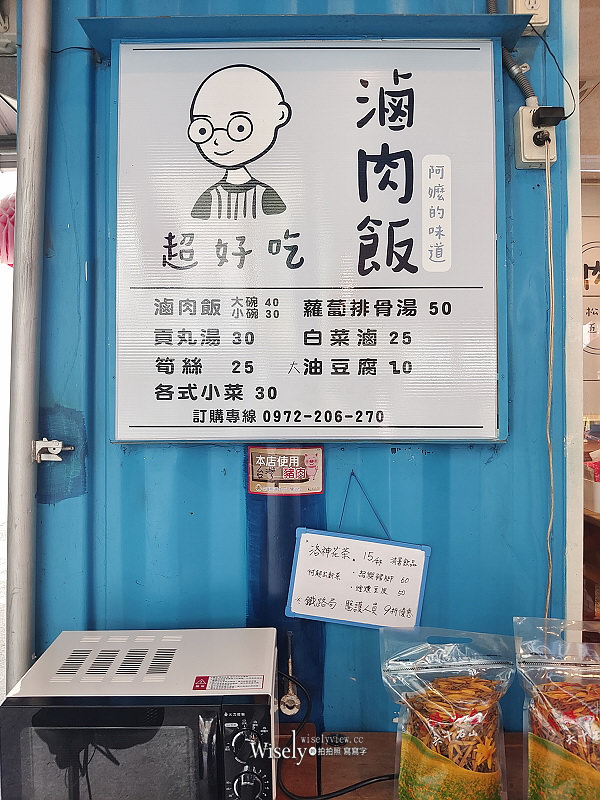 滷肉飯
阿嬤的味道
超好吃
滷肉飯 大碗 40 小碗 30
蘿蔔排骨湯 50
貢丸湯 30
白菜滷 25
筍絲 25
大油豆腐 10
各式小菜 30
訂購專線 0972-206-270
本店使用
台灣豬肉
洛神花茶 15元 消暑飲品
60
50
※鐵路局 醫護人員 9折優惠
wiselyview.cc
Wisely 拍拍照 寫寫字
六十石山